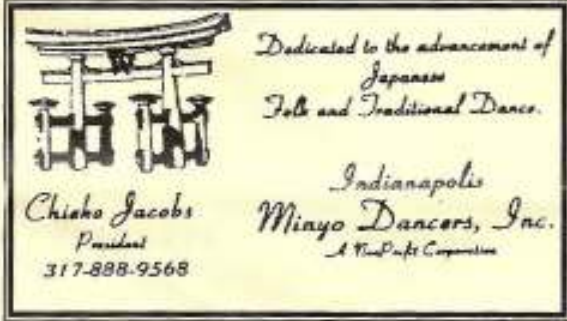 Dedicated to the advancement of
Japanese
Folk and Traditional Dance.
Indianapolis
Minyo Dancers, Inc.
A NonProfit Corporation
Chieko Jacobs
President
317-888-9568